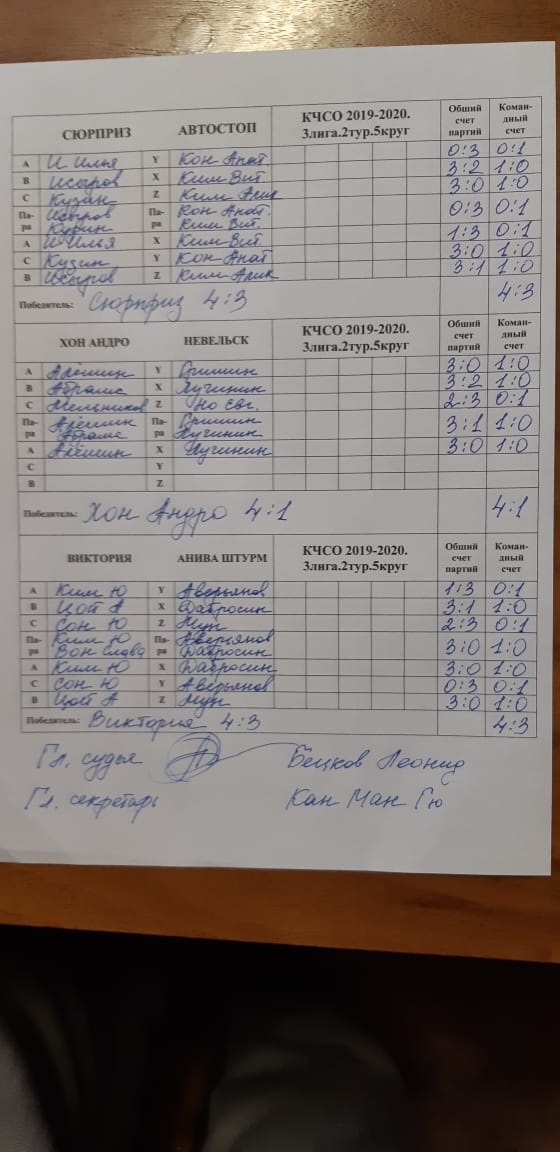 СЮРПРИЗ АВТОСТОП КЧСО 2019-2020. 3лига.2тур.5круг Общий счет партий Коман- дный счет
А И Илья Y Кон Анат 0:3 0:1
В X Ким Вит. 3:2 1:0
С Кузин Z Ким Алик 3:0 1:0
Па- ра Па- ра Кон Анат. Ким Вит. 0:3 0:1
А И Илья X Ким Вит. 1:3 0:1
С Кузин Y Кон Анат 3:0 1:0
В Z Ким Алик 3:1 1:0
Победитель: Сюрприз 4:3 4:3
ХОН АНДРО НЕВЕЛЬСК КЧСО 2019-2020. 3лига.2тур.5круг Общий счет партий Коман- дный счет
А Алёшин Y Гришин 3:0 1:0
В Абрамс X Лучинин 3:2 1:0
С Мельников Z Но Евг. 2:3 0:1
Па- ра Алёшин Абрамс Па- ра Гришин Лучинин 3:1 1:0
А Алёшин X Лучинин 3:0 1:0
С Y
В Z
Победитель: Хон Андро 4:1 4:1
ВИКТОРИЯ АНИВА ШТУРМ КЧСО 2019-2020. 3лига.2тур.5круг Общий счет партий Коман- дный счет
А Ким Ю Y Аверьянов 1:3 0:1
В Цой А X Дабросин 3:1 1:0
С Сон Ю Z 2:3 0:1
Па- ра Ким Ю Вон Слава Па- ра Аверьянов Дабросин 3:0 1:0
А Ким Ю X Дабросин 3:0 1:0
С Сон Ю Y Аверьянов 0:3 0:1
В Цой А Z 3:0 1:0
Победитель: Виктория 4:3 4:3
Гл. судья Бецков Леонид
Гл. секретарь Кан Ман Гю